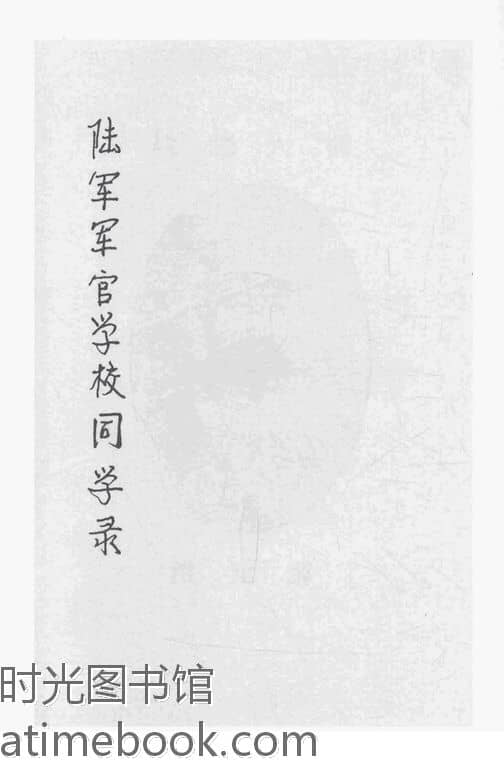 陆军军官学校同学录
时光图书馆
atimebook.com